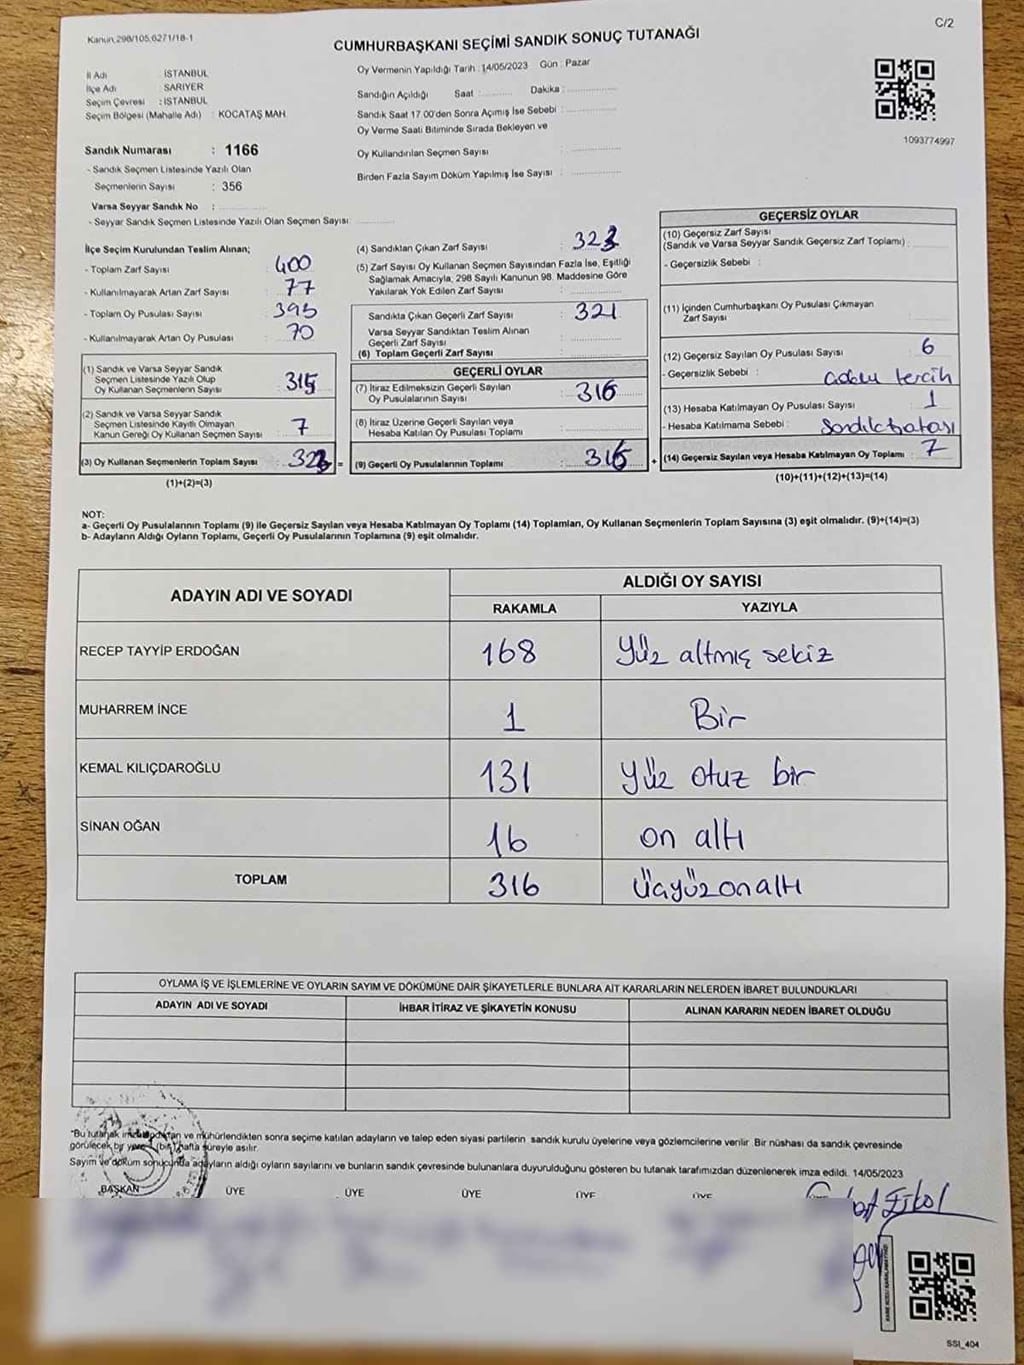 C/2
Kanun 298/105,6271/18-1
CUMHURBAŞKANI SEÇİMİ SANDIK SONUÇ TUTANAĞI
İl Adı : İSTANBUL
İlçe Adı : SARIYER
Seçim Çevresi : İSTANBUL
Seçim Bölgesi (Mahalle Adı) : KOCATAŞ MAH.
Sandık Numarası : 1166
- Sandık Seçmen Listesinde Yazılı Olan
Seçmenlerin Sayısı : 356
Varsa Seyyar Sandık No :
- Seyyar Sandık Seçmen Listesinde Yazılı Olan Seçmen Sayısı :
Oy Vermenin Yapıldığı Tarih : 14/05/2023 Gün : Pazar
Sandığın Açıldığı Saat : Dakika :
Sandık Saat 17.00'den Sonra Açımış İse Sebebi :
Oy Verme Saati Bitiminde Sırada Bekleyen ve
Oy Kullandırılan Seçmen Sayısı :
Birden Fazla Sayım Döküm Yapılmış İse Sayısı :
1093774997
İlçe Seçim Kurulundan Teslim Alınan;
- Toplam Zarf Sayısı : 400
- Kullanılmayarak Artan Zarf Sayısı : 77
- Toplam Oy Pusulası Sayısı : 395
- Kullanılmayarak Artan Oy Pusulası : 70
(1) Sandık ve Varsa Seyyar Sandık
Seçmen Listesinde Yazılı Olup
Oy Kullanan Seçmenlerin Sayısı : 316
(2) Sandık ve Varsa Seyyar Sandık
Seçmen Listesinde Kayıtlı Olmayan
Kanun Gereği Oy Kullanan Seçmen Sayısı : 7
(3) Oy Kullanan Seçmenlerin Toplam Sayısı : 323 =
(1)+(2)=(3)
(4) Sandıktan Çıkan Zarf Sayısı : 323
(5) Zarf Sayısı Oy Kullanan Seçmen Sayısından Fazla İse, Eşitliği
Sağlamak Amacıyla, 298 Sayılı Kanunun 98. Maddesine Göre
Yakılarak Yok Edilen Zarf Sayısı :
Sandıkta Çıkan Geçerli Zarf Sayısı : 321
Varsa Seyyar Sandıktan Teslim Alınan
Geçerli Zarf Sayısı :
(6) Toplam Geçerli Zarf Sayısı :
GEÇERLİ OYLAR
(7) İtiraz Edilmeksizin Geçerli Sayılan
Oy Pusulalarının Sayısı : 316
(8) İtiraz Üzerine Geçerli Sayılan veya
Hesaba Katılan Oy Pusulası Toplamı :
(9) Geçerli Oy Pusulalarının Toplamı : 316 +
GEÇERSİZ OYLAR
(10) Geçersiz Zarf Sayısı
(Sandık ve Varsa Seyyar Sandık Geçersiz Zarf Toplamı) :
- Geçersizlik Sebebi :
(11) İçinden Cumhurbaşkanı Oy Pusulası Çıkmayan
Zarf Sayısı :
(12) Geçersiz Sayılan Oy Pusulası Sayısı : 6
- Geçersizlik Sebebi : tercih
(13) Hesaba Katılmayan Oy Pusulası Sayısı : 1
- Hesaba Katılmama Sebebi : Sandık hatası
(14) Geçersiz Sayılan veya Hesaba Katılmayan Oy Toplamı : 7
(10)+(11)+(12)+(13)=(14)
NOT:
a- Geçerli Oy Pusulalarının Toplamı (9) ile Geçersiz Sayılan veya Hesaba Katılmayan Oy Toplamı (14) Toplamları, Oy Kullanan Seçmenlerin Toplam Sayısına (3) eşit olmalıdır. (9)+(14)=(3)
b- Adayların Aldığı Oyların Toplamı, Geçerli Oy Pusulalarının Toplamına (9) eşit olmalıdır.
ADAYIN ADI VE SOYADI ALDIĞI OY SAYISI
RAKAMLA YAZIYLA
RECEP TAYYİP ERDOĞAN 168 Yüz altmış sekiz
MUHARREM İNCE 1 Bir
KEMAL KILIÇDAROĞLU 131 yüz otuz bir
SİNAN OĞAN 16 on altı
TOPLAM 316 Üçyüzonaltı
OYLAMA İŞ VE İŞLEMLERİNE VE OYLARIN SAYIM VE DÖKÜMÜNE DAİR ŞİKAYETLERLE BUNLARA AİT KARARLARIN NELERDEN İBARET BULUNDUKLARI
ADAYIN ADI VE SOYADI İHBAR İTİRAZ VE ŞİKAYETİN KONUSU ALINAN KARARIN NEDEN İBARET OLDUĞU
*Bu tutanak imzalandıktan ve mühürlendikten sonra seçime katılan adayların ve talep eden siyasi partilerin sandık kurulu üyelerine veya gözlemcilerine verilir. Bir nüshası da sandık çevresinde
görülecek bir yere 1 (bir) hafta süreyle asılır.
Sayım ve döküm sonucunda adayların aldığı oyların sayılarını ve bunların sandık çevresinde bulunanlara duyurulduğunu gösteren bu tutanak tarafımızdan düzenlenerek imza edildi. 14/05/2023
BAŞKAN ÜYE ÜYE ÜYE ÜYE ÜYE
SSI_404